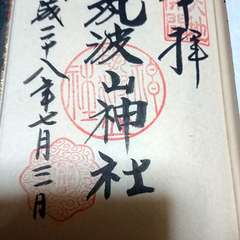 奉拝
筑波山神社
平成二十八年七月三日